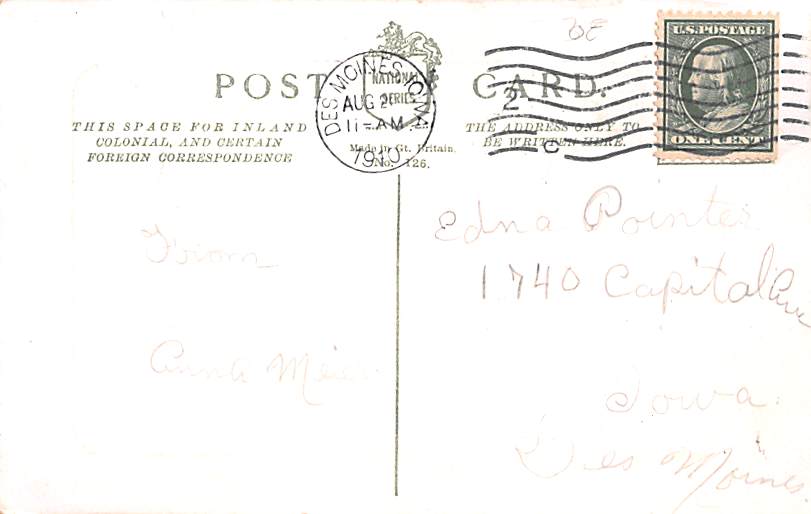 POST CARD.
NATIONAL
SERIES
THIS SPACE FOR INLAND
COLONIAL, AND CERTAIN
FOREIGN CORRESPONDENCE
Made in Gt. Britain.
No. 126.
THE ADDRESS ONLY TO
BE WRITTEN HERE.
DES MOINES, IOWA
AUG 2
11-AM
1910
2
C
U.S. POSTAGE
ONE CENT
From
Anna Meier
Edna Pointer
1740 Capital Ave
Iowa.
Des Moines.